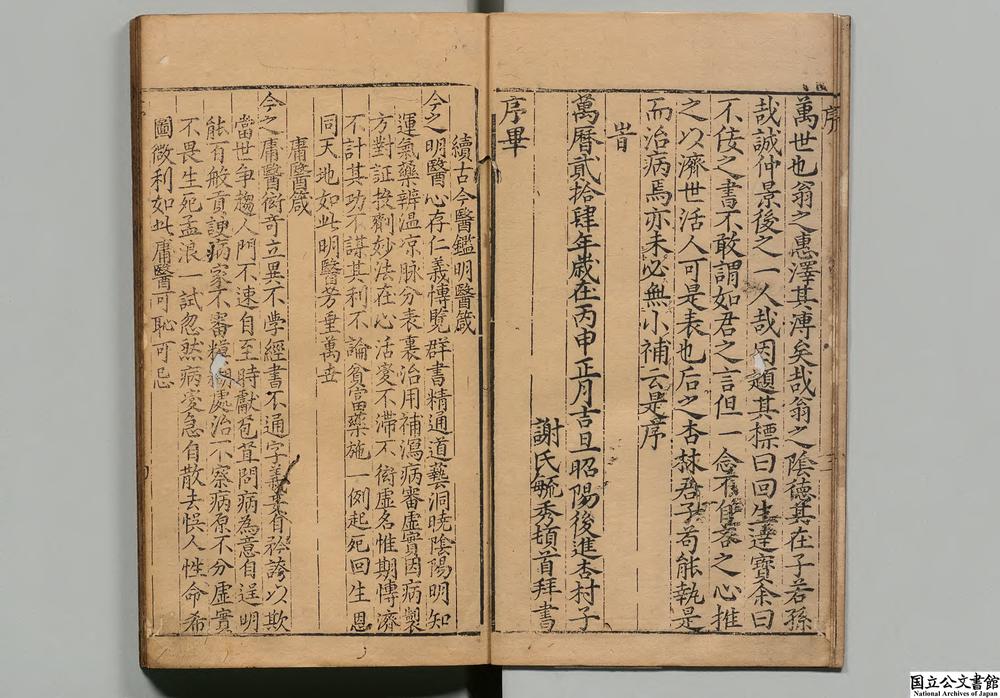 序
萬世也翁之惠澤其溥矣哉翁之陰德其在子若孫
哉誠仲景後之一人哉因題其標曰回生達寶余曰
不佞之書不敢謂如君之言但一念不自吝之心推
之以濟世活人可是表也后之杏林君子苟能執是
而治病焉亦未必無小補云是序
旹
萬曆貳拾肆年歲在丙申正月吉旦昭陽後進杏村子
謝氏毓秀頓首拜書
序畢
續古今醫鑑明醫箴
今之明醫心存仁義慱覽群書精通道藝洞曉陰陽明知
運氣藥辨温凉脉分表裏治用補瀉病審虛實因病製
方對証投劑妙法在心活變不滯不衒虛名惟期慱濟
不計其功不謀其利不論貧富藥施一例起死回生恩
同天地如此明醫芳垂萬世
庸醫箴
今之庸醫衒奇立異不學經書不通字義妄自矜誇以欺
當世争趨人門不速自至時獻苞苴問病為意自逞明
能有般貢諛病家不審模糊處治不察病原不分虛實
不畏生死孟浪一試忽然病變急自散去悞人性命希
圖微利如此庸醫可恥可忌
国立公文書館
National Archives of Japan